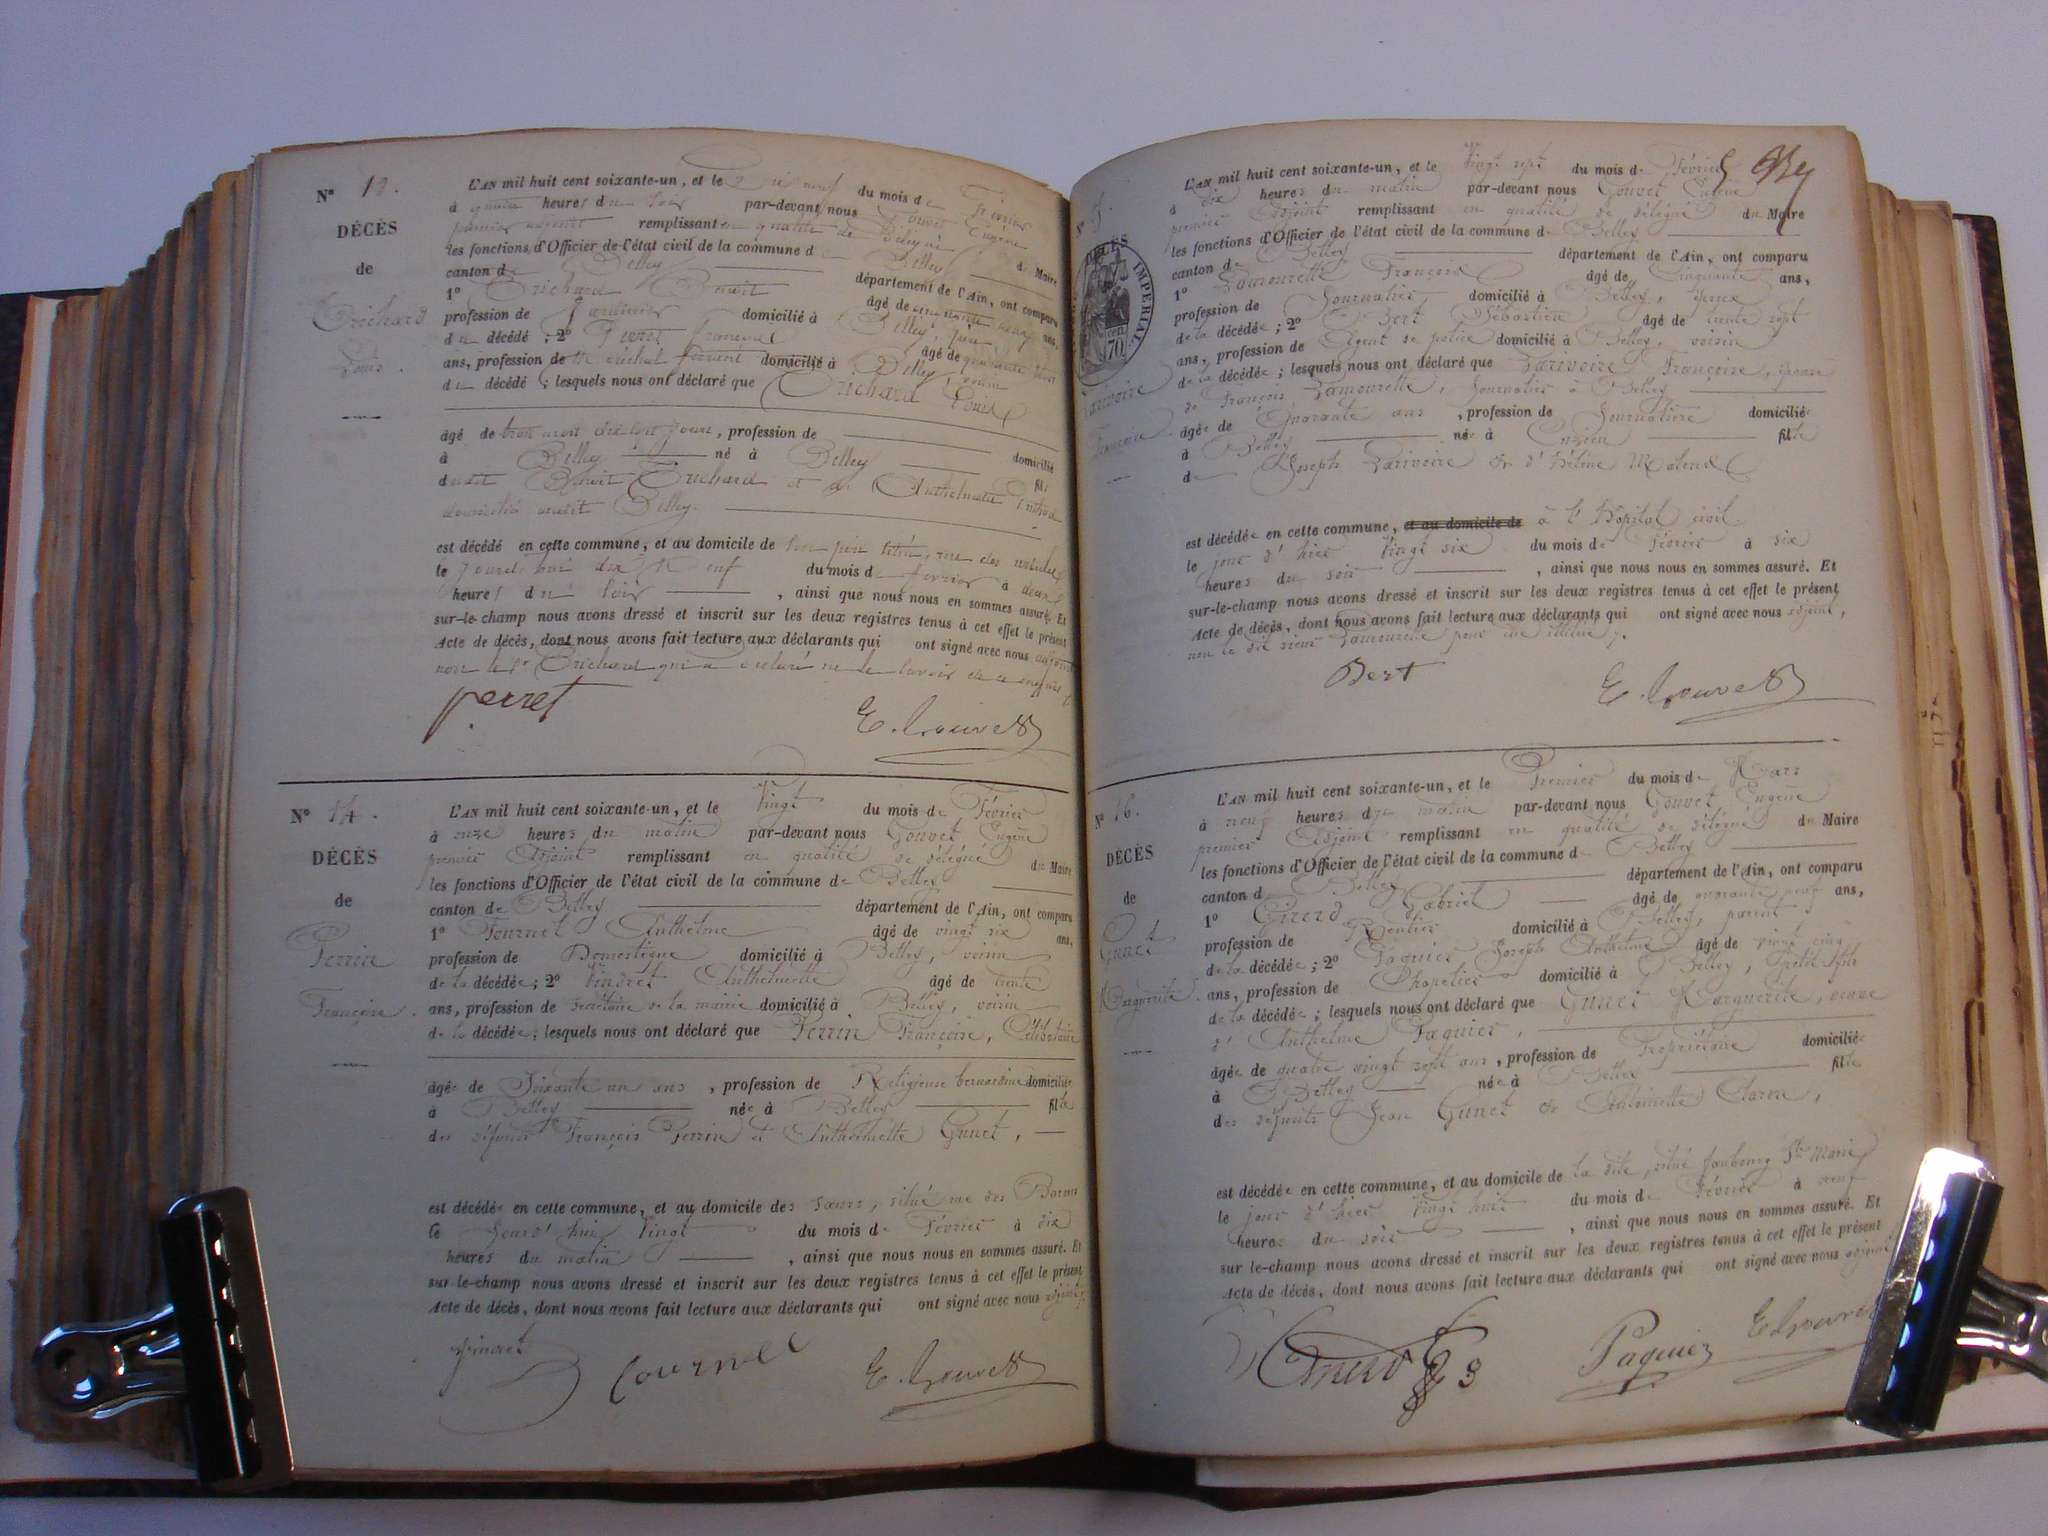 N° 13.
DÉCÈS
de
Trichard
Louis.
L'AN mil huit cent soixante-un, et le dix neuf du mois de Février
à quatre heures du soir par-devant nous Gouvet Eugène
premier adjoint remplissant en qualité de délégué du Maire
les fonctions d'Officier de l'état civil de la commune de Belley
canton de Belley département de l'Ain, ont comparu
1° Trichard Benoit âgé de cinquante ans,
profession de domicilié à Belley, père
du décédé ; 2° Perret françois âgé de quarante
ans, profession de Maréchal ferrant domicilié à Belley voisin
du décédé ; lesquels nous ont déclaré que Trichard Louis
âgé de trois mois dix huit jours, profession de domicilié
à Belley né à Belley fils
dudit Benoit Trichard et de Anthelmette
domiciliés audit Belley.
est décédé en cette commune, et au domicile de son père situé, rue des
le Jourd'hui dix Neuf du mois de février à deux
heures du soir , ainsi que nous nous en sommes assuré. Et
sur-le-champ nous avons dressé et inscrit sur les deux registres tenus à cet effet le présent
Acte de décès, dont nous avons fait lecture aux déclarants qui ont signé avec nous adjoint
non le Sr Trichard qui a déclaré ne le savoir de ce enquis
perret E. Gouvet
N° 14.
DÉCÈS
de
Perrin
Françoise.
L'AN mil huit cent soixante-un, et le Vingt du mois de Février
à onze heures du matin par-devant nous Gouvet Eugène
premier Adjoint remplissant en qualité de délégué du Maire
les fonctions d'Officier de l'état civil de la commune de Belley
canton de Belley département de l'Ain, ont comparu
1° Tournet Anthelme âgé de vingt six ans,
profession de Domestique domicilié à Belley, voisin
de la décédée ; 2° Vindret Anthelmette âgé de trente
ans, profession de Secrétaire de la mairie domicilié à Belley, voisin
de la décédée ; lesquels nous ont déclaré que Perrin Françoise, Célibataire
âgée de Soixante un ans , profession de Religieuse bernardine domiciliée
à Belley née à Belley fille
des défunts François Perrin et Anthelmette Gunet,
est décédée en cette commune, et au domicile des sœurs, situé rue des Barons
le Jourd'hui Vingt du mois de Février à dix
heures du matin , ainsi que nous nous en sommes assuré. Et
sur-le-champ nous avons dressé et inscrit sur les deux registres tenus à cet effet le présent
Acte de décès, dont nous avons fait lecture aux déclarants qui ont signé avec nous adjoint
Vindret Tournet E. Gouvet
DÉCÈS
IMPÉRIAL
70
Larivoire
Françoise
L'AN mil huit cent soixante-un, et le Vingt sept du mois de Février
à dix heures du matin par-devant nous Gouvet Eugène
premier Adjoint remplissant en qualité de délégué du Maire
les fonctions d'Officier de l'état civil de la commune de Belley
canton de Belley département de l'Ain, ont comparu
1° Lamourette François âgé de Cinquante ans,
profession de Journalier domicilié à Belley,
de la décédée ; 2° Bert Sébastien âgé de trente sept
ans, profession de Agent de police domicilié à Belley, voisin
de la décédée ; lesquels nous ont déclaré que Larivoire Françoise, épouse
de François Lamourette, Journalier à Belley
âgée de Quarante ans , profession de Journalière domiciliée
à Belley née à fille
de Joseph Larivoire & d'Hélène
est décédée en cette commune, et au domicile de à l'Hôpital civil
le jour d'hier Vingt six du mois de Février à six
heures du soir , ainsi que nous nous en sommes assuré. Et
sur-le-champ nous avons dressé et inscrit sur les deux registres tenus à cet effet le présent
Acte de décès, dont nous avons fait lecture aux déclarants qui ont signé avec nous adjoint,
non le dit sieur Lamourette pour être illitéré.
Bert E. Gouvet
N° 16.
DÉCÈS
de
Gunet
Marguerite.
L'AN mil huit cent soixante-un, et le Premier du mois de Mars
à neuf heures du matin par-devant nous Gouvet Eugène
premier Adjoint remplissant en qualité de délégué du Maire
les fonctions d'Officier de l'état civil de la commune de Belley
canton de Belley département de l'Ain, ont comparu
1° Girerd Gabriel âgé de quarante neuf ans,
profession de Rentier domicilié à Belley, parent
de la décédée ; 2° Paquier Joseph Anthelme âgé de vingt cinq
ans, profession de Chapelier domicilié à Belley, petit-fils
de la décédée ; lesquels nous ont déclaré que Gunet Marguerite, veuve
d'Anthelme Paquier,
âgée de quatre vingt sept ans, profession de Propriétaire domiciliée
à Belley née à Belley fille
des défunts Jean Gunet & Antoinette Claron,
est décédée en cette commune, et au domicile de la dite, situé faubourg Ste Marie
le jour d'hier Vingt huit du mois de Février à neuf
heures du soir , ainsi que nous nous en sommes assuré. Et
sur-le-champ nous avons dressé et inscrit sur les deux registres tenus à cet effet le présent
Acte de décès, dont nous avons fait lecture aux déclarants qui ont signé avec nous adjoint
Girerd Paquier E. Gouvet